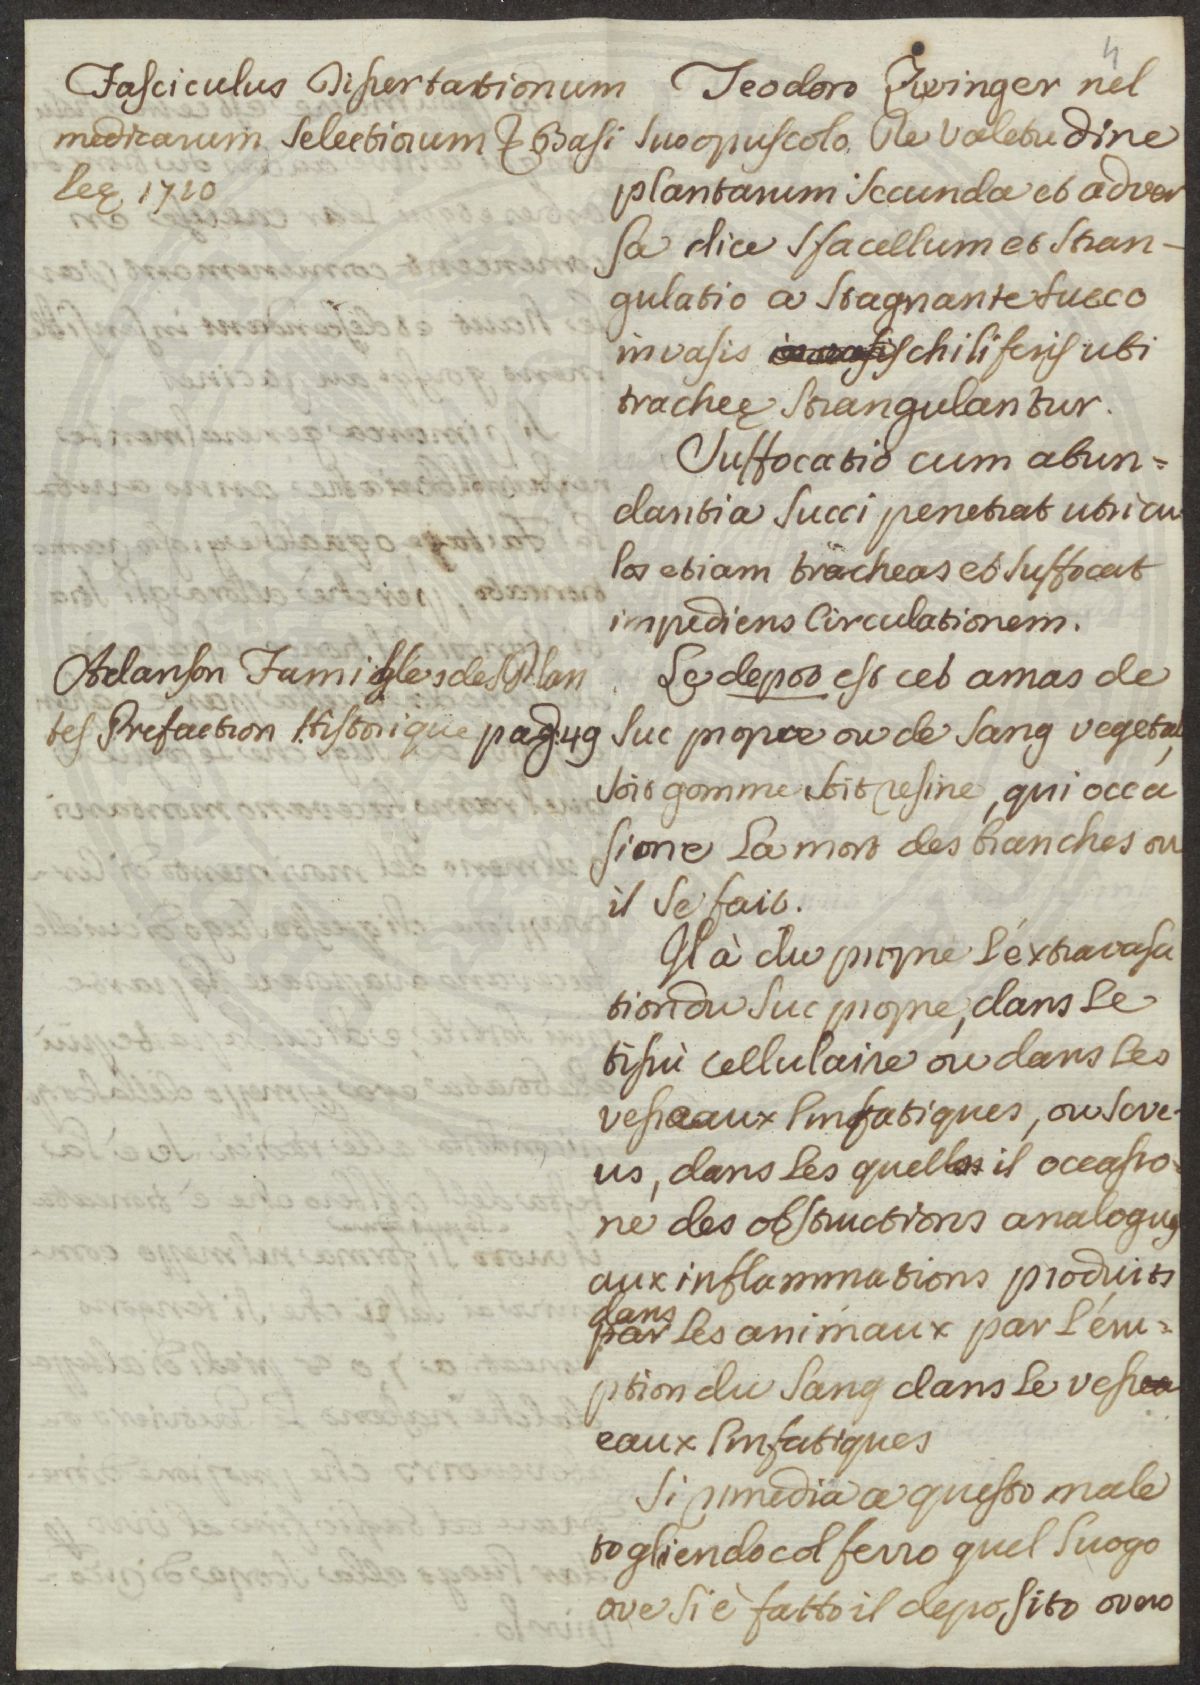 4
Fasciculus Dissertationum
medicarum Selectiorum & Basi
leę 1710
Teodoro Zwinger nel
suo opuscolo De Valetudine
plantarum secunda et adver
sa dice Sfacellum et stran-
gulatio a stagnante succo
in vasis chiliferis ubi
tracheę strangulantur.
Suffocatio cum abun=
dantia succi penetrat utricu
los etiam tracheas et suffocat
impediens Circulationem.
Adanson Famigles des Plan
tes Prefaction Historique pag. 49
Le depot est cet amas de
suc propre ou de sang vegetal,
soit gomme soit resine, qui occa
sione la mort des branches ou
il se fait.
Il à du propre l'éxtravasa
tion du suc propre, dans le
tissu cellulaire ou dans les
vesseaux linfatiques, ou seve-
us, dans les quells il occasio=
ne des obstructions analogues
aux inflammations produits
dans
par les animaux par l'éru=
ption du sang dans le vesse
eaux linfatiques
Si rimedia a questo male
togliendo col ferro quel luogo
ove si è fatto il deposito overo